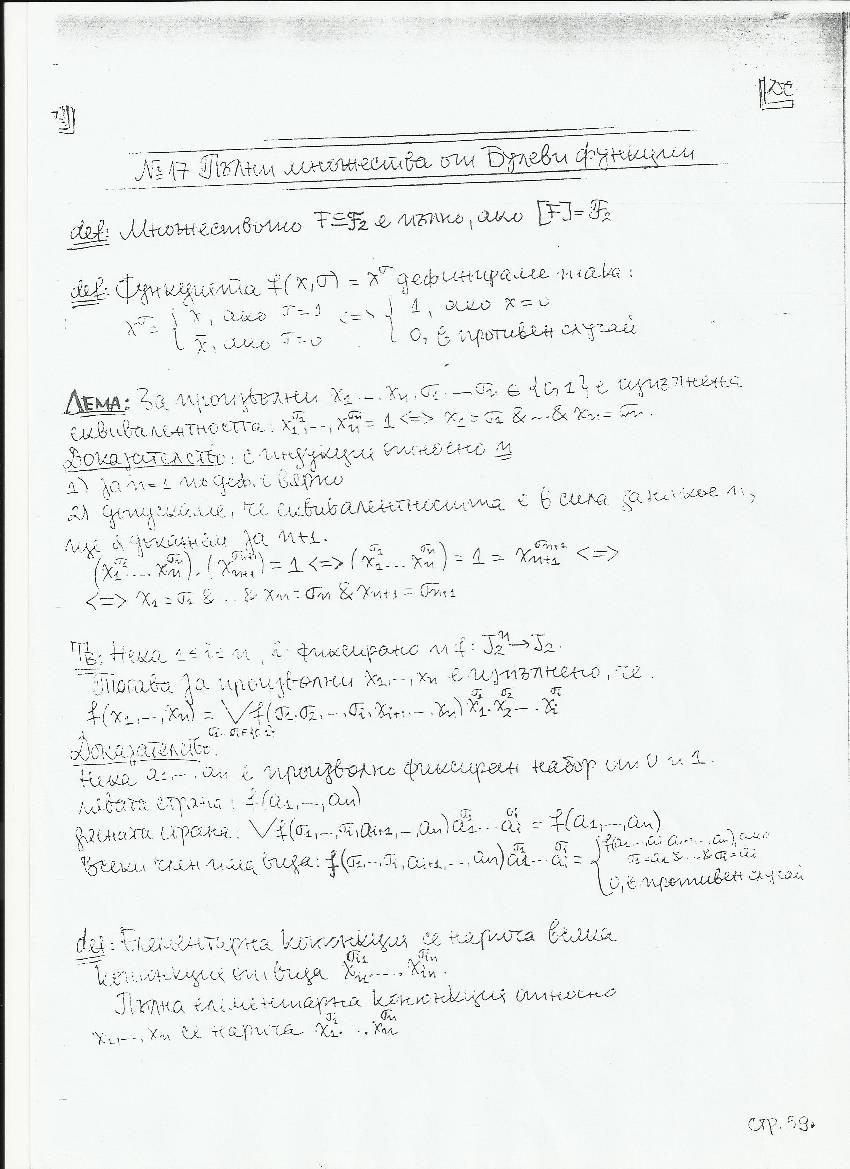 ДС
№17 Пълни множества от Булеви функции
def: Множеството F⊆F₂ е пълно, ако [F]=F₂
def: Функцията f(x,σ) = x^σ дефинираме така:
x^σ = { x, ако σ=1 <=> { 1, ако x=σ
x̄, ако σ=0 0, в противен случай
ЛЕМА: За произволни x₁...xₙ, σ₁...σₙ ∈ {0,1} е изпълнена
еквивалентността: x₁^σ₁,..,xₙ^σₙ = 1 <=> x₁=σ₁ &...& xₙ=σₙ.
Доказателство: с индукция относно n
1) за n=1 по деф. е вярно
2) допускаме, че еквивалентността е в сила за някое n,
ще я докажем за n+1.
(x₁^σ₁....xₙ^σₙ).(xₙ₊₁^σₙ₊₁) = 1 <=> (x₁^σ₁...xₙ^σₙ) = 1 = xₙ₊₁^σₙ₊₁ <=>
<=> x₁=σ₁ & .. & xₙ=σₙ & xₙ₊₁=σₙ₊₁
Тв: Нека 1≤i≤n, i фиксирано и f: J₂ⁿ→J₂.
Тогава за произволни x₁,..,xₙ е изпълнено, че
f(x₁,..,xₙ) = ⋁ f(σ₁.σ₂,..,σᵢ,xᵢ₊₁...xₙ) x₁^σ₁.x₂^σ₂...xᵢ^σᵢ
Доказателство:
Нека a₁...aₙ е произволно фиксиран набор от 0 и 1.
лявата страна: f(a₁,..,aₙ)
дясната страна: ⋁f(σ₁,..,σᵢ,aᵢ₊₁,..,aₙ)a₁^σ₁...aᵢ^σᵢ = f(a₁,..,aₙ)
Всеки член има вида: f(σ₁..,σᵢ,aᵢ₊₁,...,aₙ)a₁^σ₁...aᵢ^σᵢ = { f(a₁...aᵢ aᵢ₊₁...aₙ), ако
σ₁=a₁ &...& σᵢ=aᵢ
0, в противен случай
def: Елементарна конюнкция се нарича всяка
конюнкция от вида xᵢ₁^σᵢ₁.....xᵢₙ^σᵢₙ.
Пълна елементарна конюнкция относно
x₁,..,xₙ се нарича x₁^σ₁...xₙ^σₙ
стр. 59.